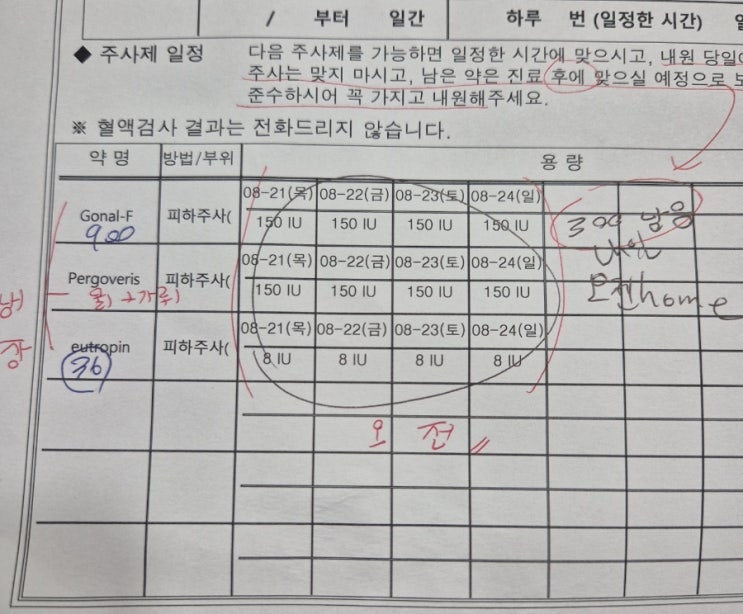 / 부터 일간 하루 번 (일정한 시간)
◆ 주사제 일정
다음 주사제를 가능하면 일정한 시간에 맞으시고, 내원 당일
주사는 맞지 마시고, 남은 약은 진료 후에 맞으실 예정으로
준수하시어 꼭 가지고 내원해주세요.
※ 혈액검사 결과는 전화드리지 않습니다.
약 명 방법/부위 용 량
08-21(목) 08-22(금) 08-23(토) 08-24(일)
Gonal-F 피하주사(
150 IU 150 IU 150 IU 150 IU
900
300 남음
내일
오전 home
08-21(목) 08-22(금) 08-23(토) 08-24(일)
Pergoveris 피하주사(
150 IU 150 IU 150 IU 150 IU
물1+가루1
냉장
08-21(목) 08-22(금) 08-23(토) 08-24(일)
eutropin 피하주사(
8 IU 8 IU 8 IU 8 IU
36
오 전